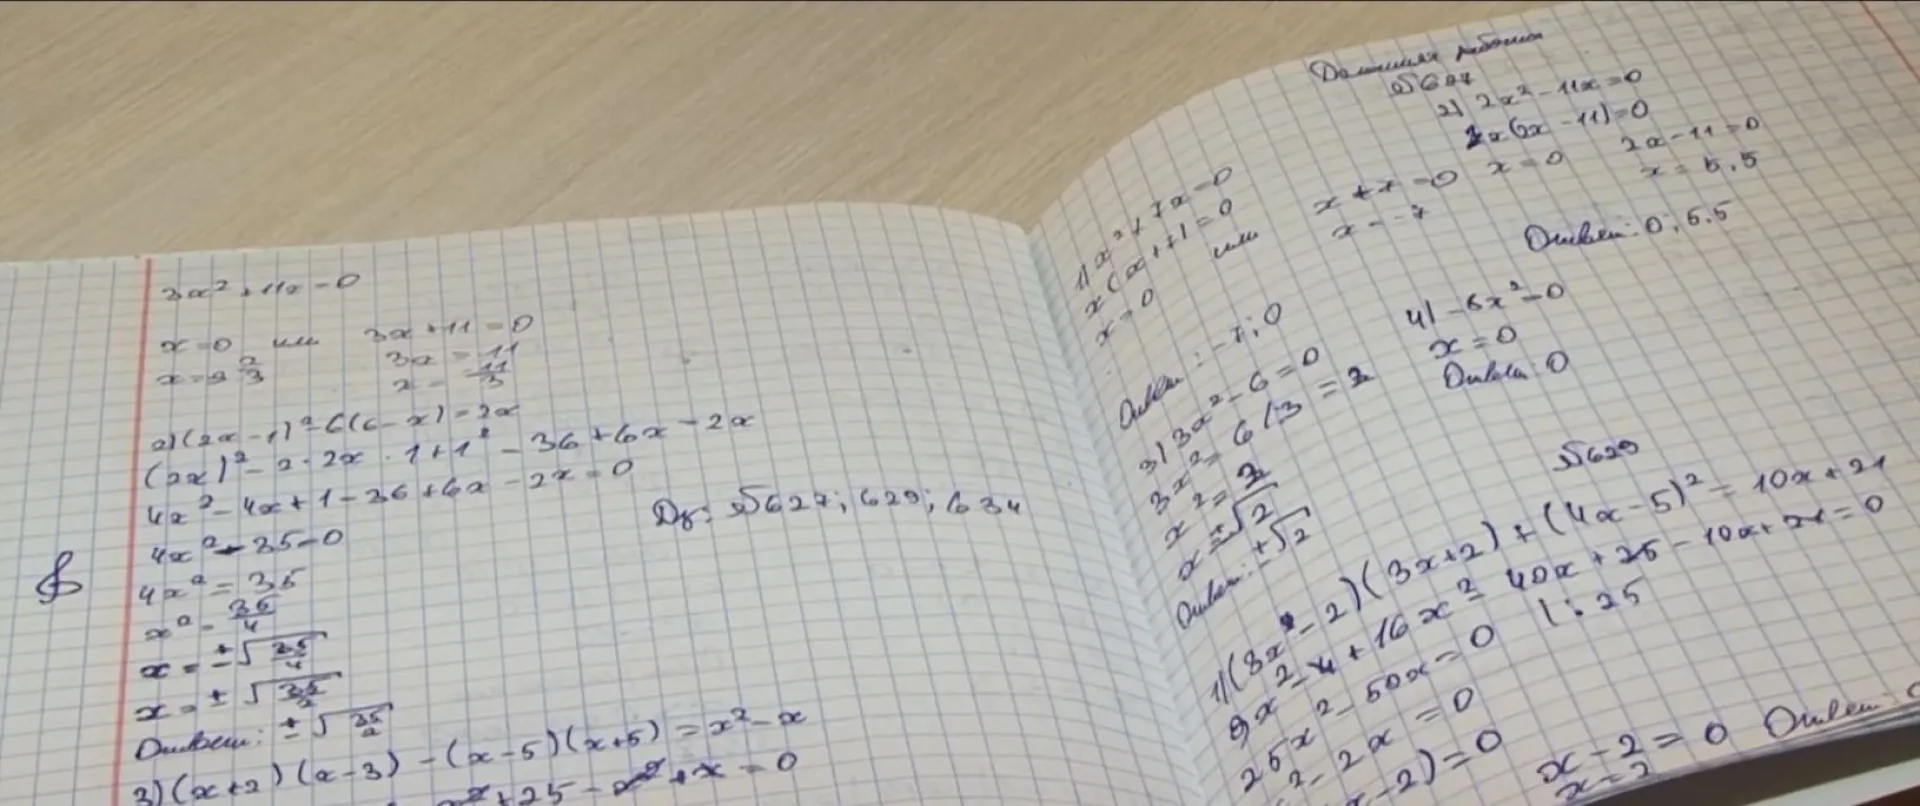 3x² + 11x = 0
x = 0 или 3x + 11 = 0
3x = -11
x = -11/3
2) (2x - 1)² - 6(6 - x) = 2x
(2x)² - 2 · 2x · 1 + 1² - 36 + 6x - 2x
4x² - 4x + 1 - 36 + 6x - 2x = 0
4x² - 35 = 0
4x² = 35
x² = 35/4
x = ±√35/4
x = ±√35/2
Ответ: ±√35/2
3) (x+2)(x-3) - (x-5)(x+5) = x² - x
+25 - x² + x = 0
Дз: №627; 629; 634
Домашняя работа
№627
1) x² + 7x = 0
x(x+7) = 0
x = 0 или x + 7 = 0
x = -7
Ответ: -7; 0
2) 2x² - 11x = 0
x(2x - 11) = 0
x = 0 2x - 11 = 0
x = 5.5
Ответ: 0; 5.5
3) 3x² - 6 = 0
3x² = 6 /:3 = 2
x² = 2
x = ±√2
Ответ: ±√2
4) -6x² = 0
x = 0
Ответ: 0
№629
1) (3x - 2)(3x+2) + (4x-5)² = 10x + 21
9x² - 4 + 16x² - 40x + 25 - 10x + 21 = 0
25x² - 50x = 0 | : 25
² - 2x = 0
x - 2) = 0 x - 2 = 0 Ответ:
x = 2